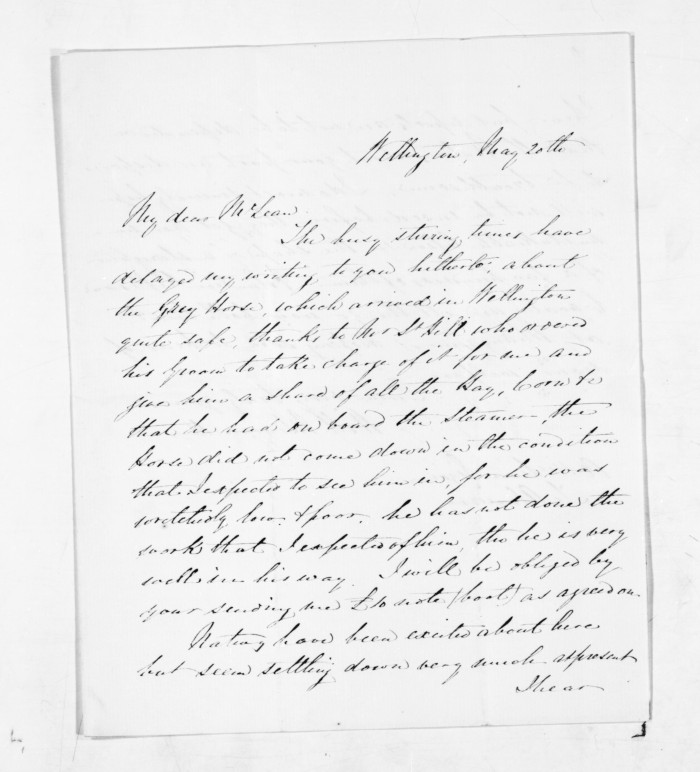 Wellington, May 20th
My dear McLean
The busy stirring times have
delayed my writing to you hitherto, about
the Grey Horse, which arrived in Wellington
quite safe, thanks to Mr St Hill who ordered
his Groom to take charge of it for me and
give him a share of all the Hay, Corn &c
that he had on board the Steamer, the
Horse did not come down in the condition
that I expected to see him in, for he was
wretchedly low & poor. he has not done the
work that I expected of him, tho he is very
well in his way. I will be obliged by
your sending me £10 note (boot) as agreed on.
Natives have been excited about here
but seem settling down very much at present
I hear